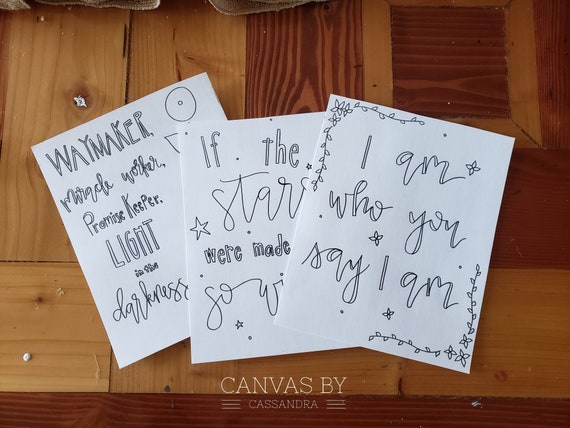 WAYMAKER,
miracle worker,
Promise Keeper,
LIGHT
in the
darkness
If the
stars
were made
so wi
I am
who you
say I am
CANVAS BY
CASSANDRA